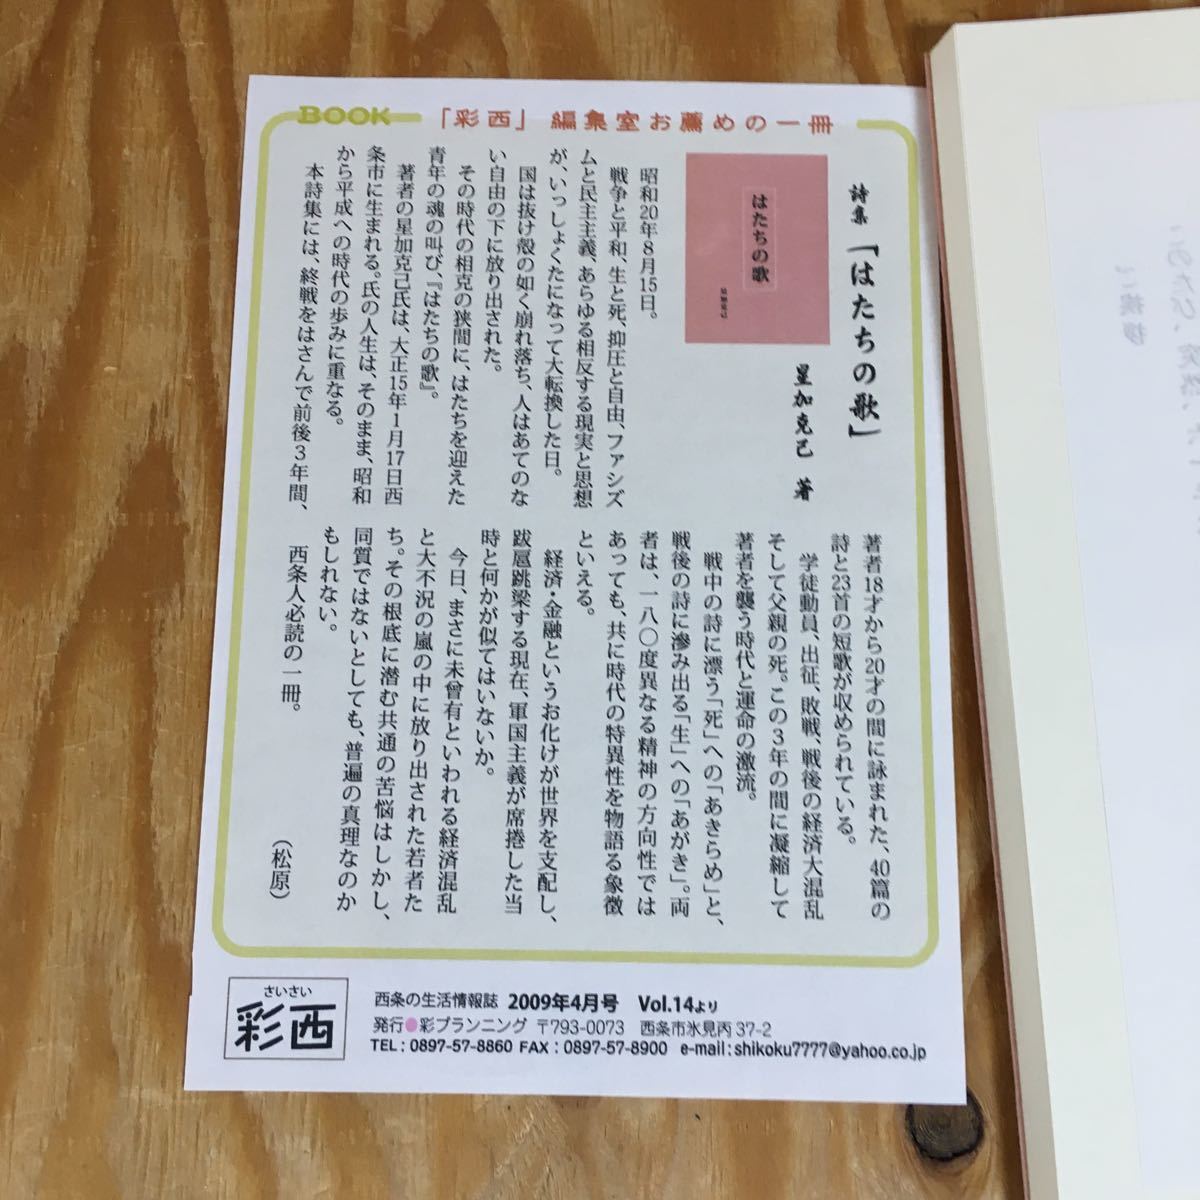 BOOK
「彩西」編集室お薦めの一冊
詩集「はたちの歌」
星加克己 著
はたちの歌
昭和20年8月15日。
戦争と平和、生と死、抑圧と自由、ファシズ
ムと民主主義、あらゆる相反する現実と思想
が、いっしょくたになって大転換した日。
国は抜け殻の如く崩れ落ち、人はあてのな
い自由の下に放り出された。
その時代の相克の狭間に、はたちを迎えた
青年の魂の叫び、『はたちの歌』。
著者の星加克己氏は、大正15年1月17日西
条市に生まれる。氏の人生は、そのまま、昭和
から平成への時代の歩みに重なる。
本詩集には、終戦をはさんで前後3年間、
著者18才から20才の間に詠まれた、40篇の
詩と23首の短歌が収められている。
学徒動員、出征、敗戦、戦後の経済大混乱
そして父親の死。この3年の間に凝縮して
著者を襲う時代と運命の激流。
戦中の詩に漂う「死」への「あきらめ」と、
戦後の詩に滲み出る「生」への「あがき」。両
者は、一八〇度異なる精神の方向性では
あっても、共に時代の特異性を物語る象徴
といえる。
経済・金融というお化けが世界を支配し、
跋扈跳梁する現在、軍国主義が席捲した当
時と何かが似てはいないか。
今日、まさに未曾有といわれる経済混乱
と大不況の嵐の中に放り出された若者た
ち。その根底に潜む共通の苦悩はしかし、
同質ではないとしても、普遍の真理なのか
もしれない。
西条人必読の一冊。
（松原）
さいさい
彩西
西条の生活情報誌 2009年4月号 Vol.14より
発行●彩プランニング 〒793-0073 西条市氷見丙37-2
TEL：0897-57-8860 FAX：0897-57-8900 e-mail：shikoku7777@yahoo.co.jp
ご挨拶